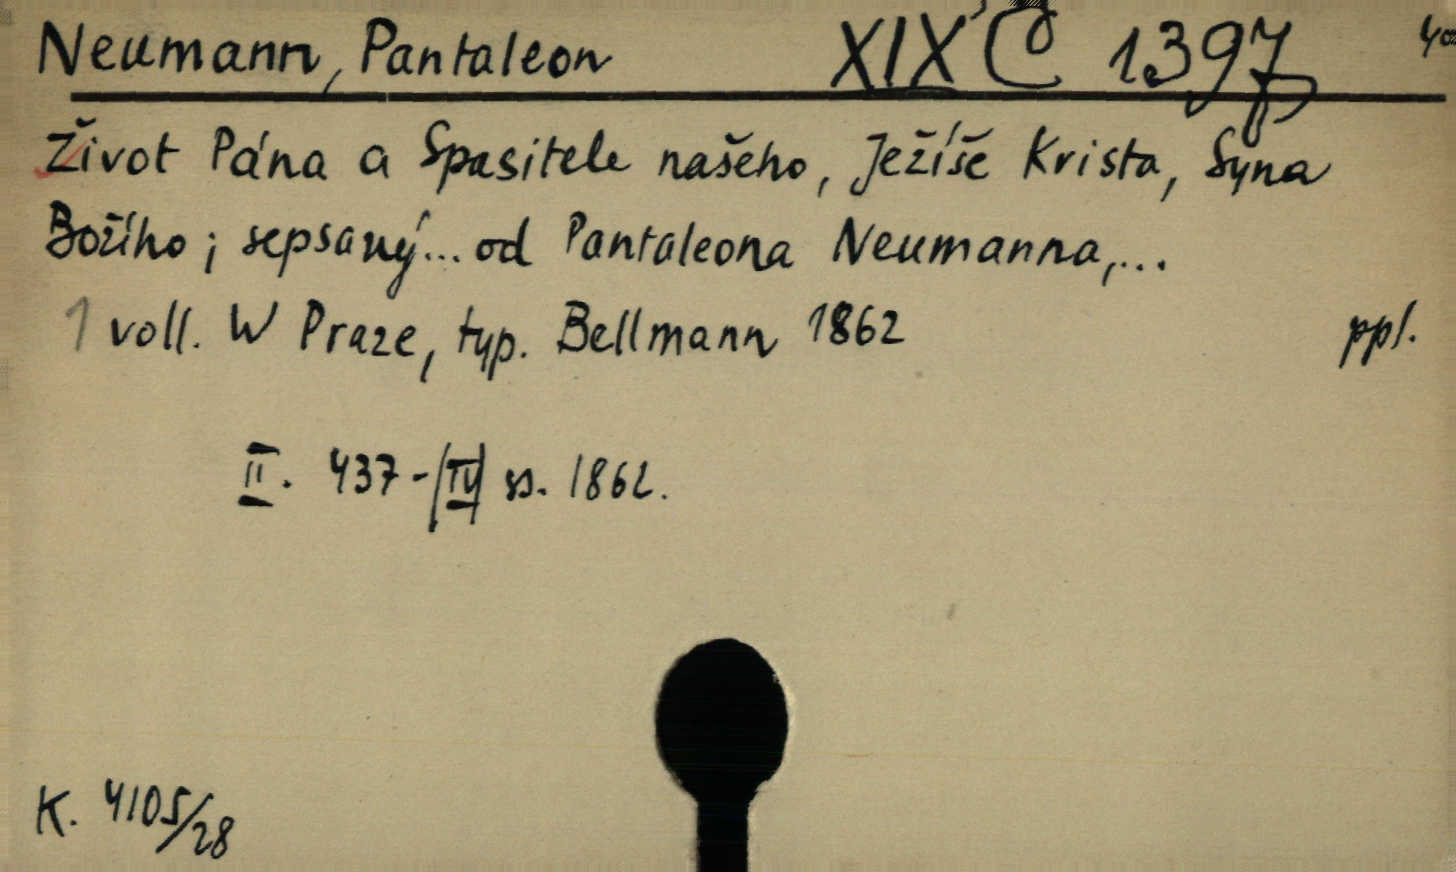 Neumann, Pantaleon XIX C 1397
Život Pána a Spasitele našeho, Ježíše Krista, Syna
Božího; sepsaný... od Pantaleona Neumanna,...
1 voll. W Praze, typ. Bellmann 1862 ppl.
II. 437-[IV] ss. 1862.
K. 4105/28